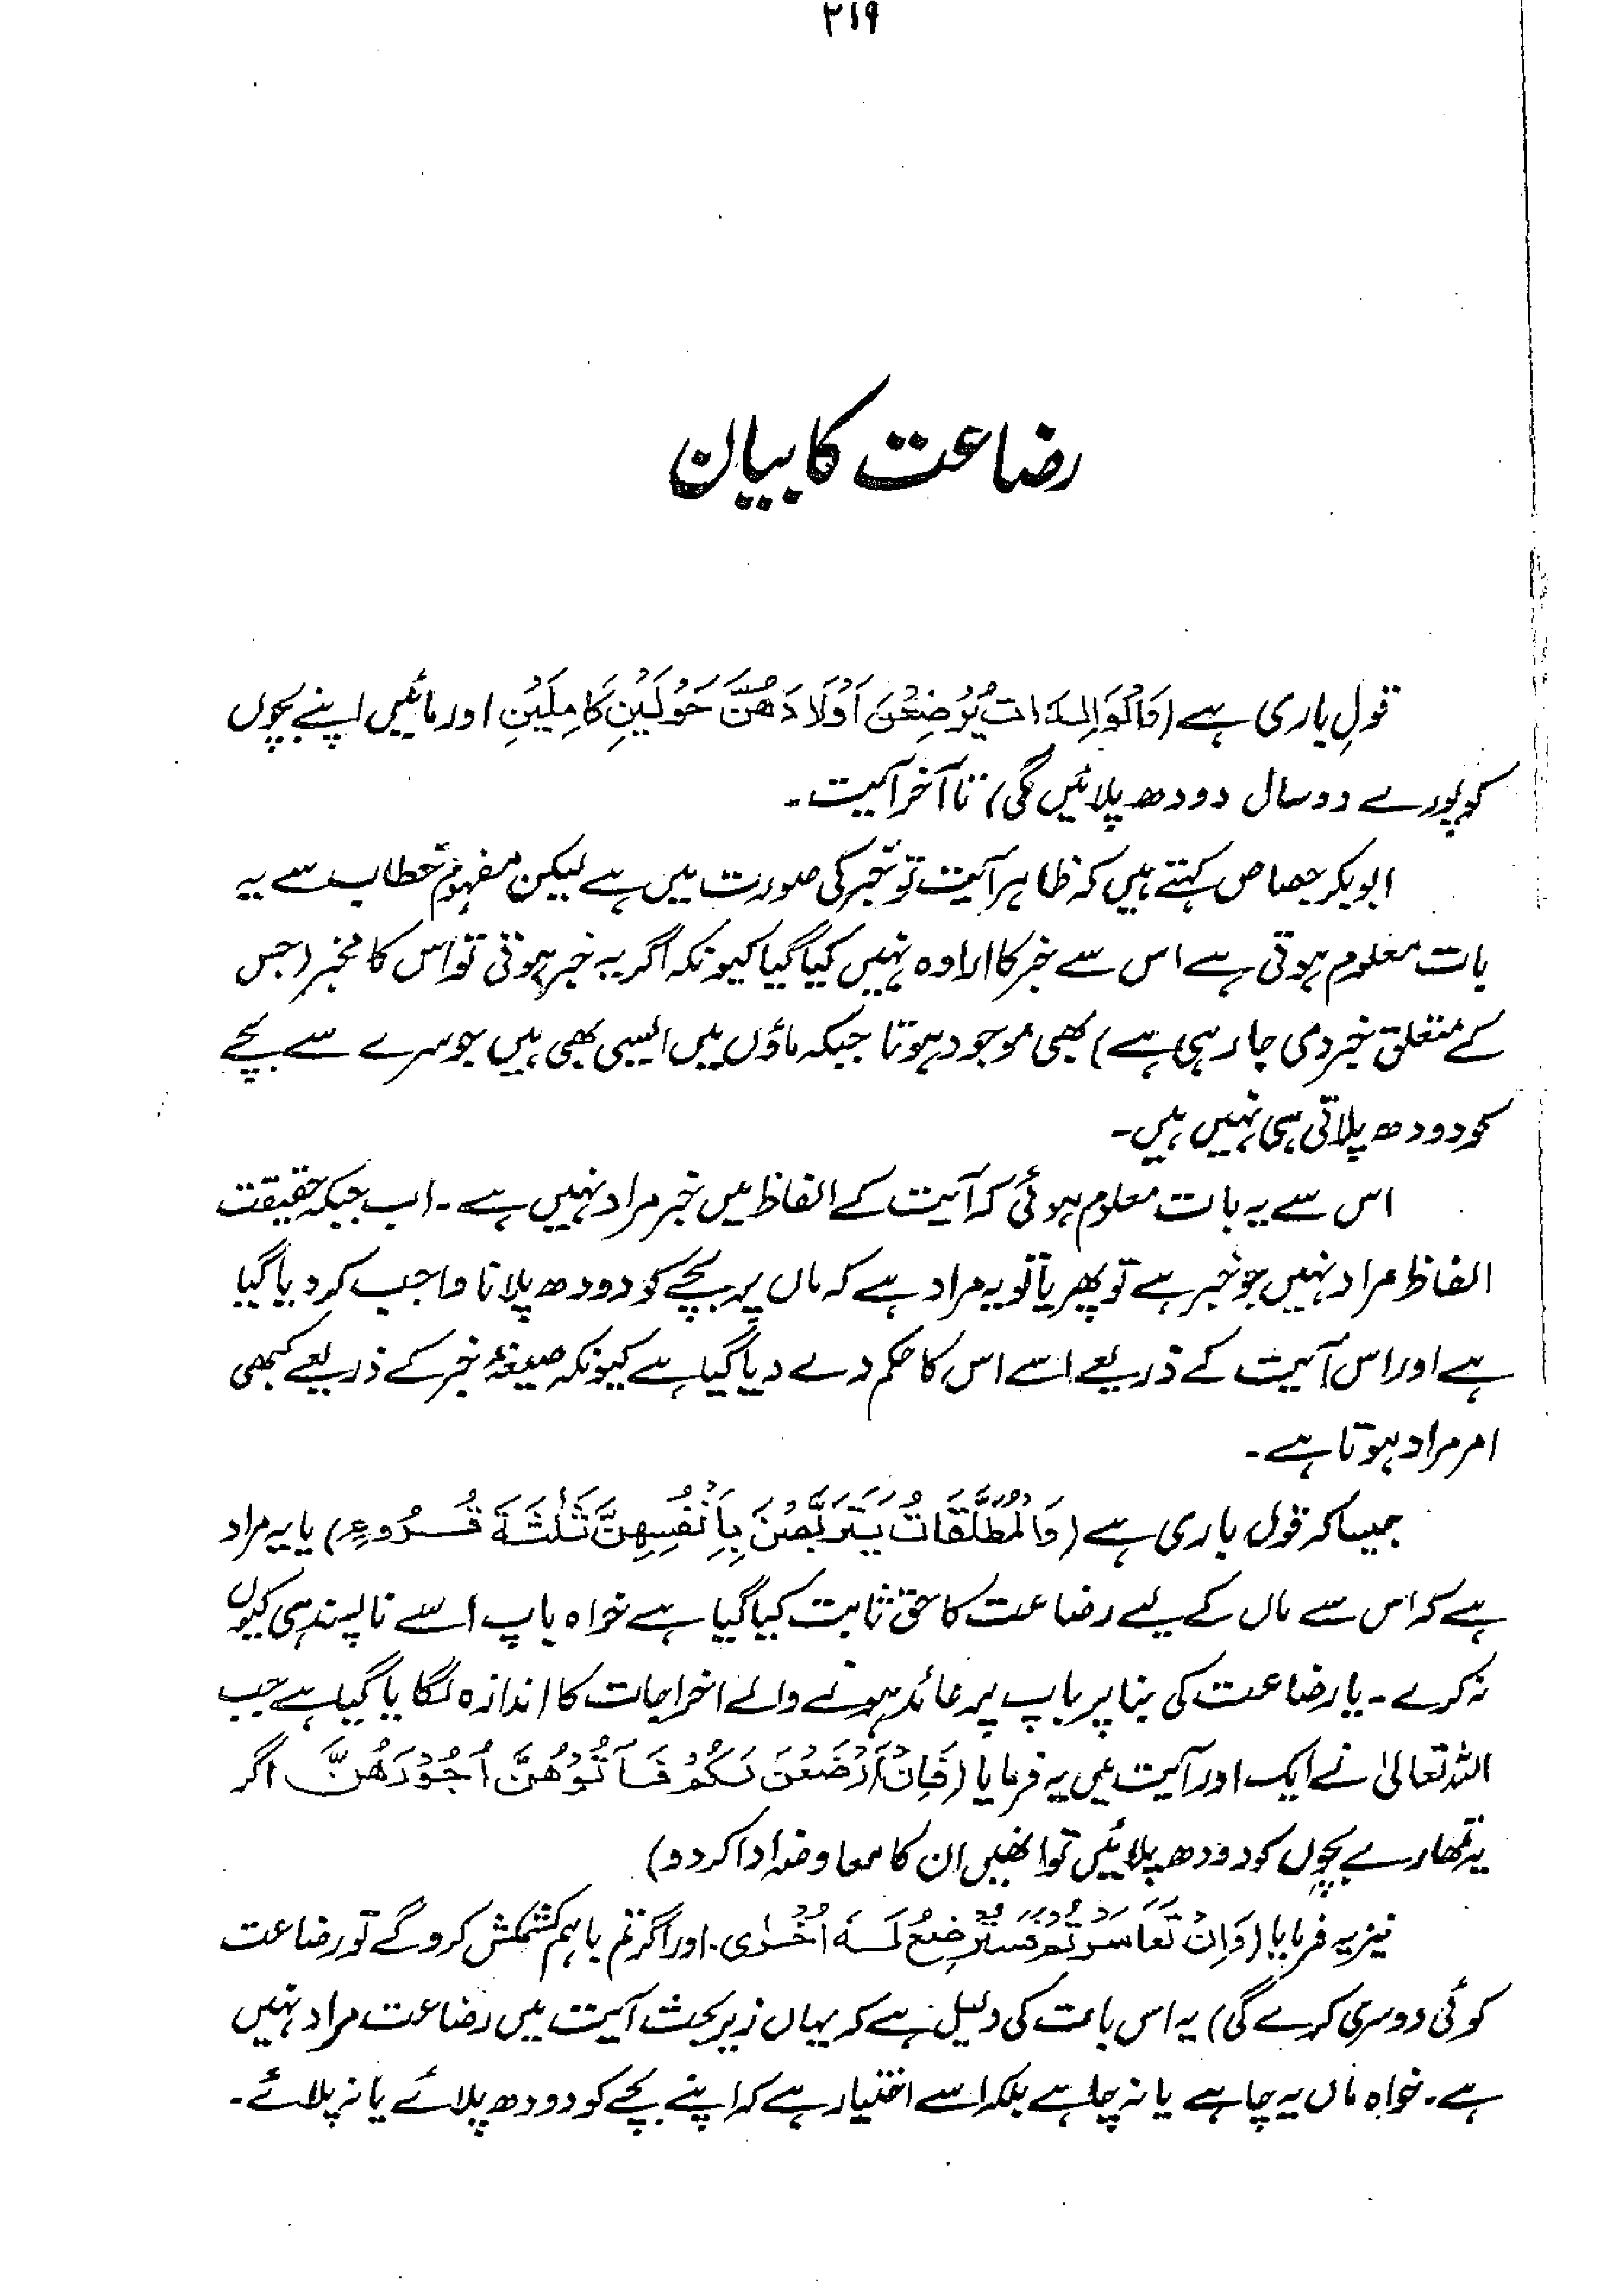 ۲۱۹
رضاعت کا بیان
قولِ باری ہے (وَالْوَالِدَاتُ یُرْضِعْنَ اَوْلَادَھُنَّ حَوْلَیْنِ کَامِلَیْنِ اور مائیں اپنے بچوں
کو پورے دو سال دودھ پلائیں گی) تا آخر آیت۔
ابوبکر جصاص کہتے ہیں کہ ظاہر آیت تو خبر کی صورت میں ہے لیکن مفہومِ خطاب سے یہ
بات معلوم ہوتی ہے اس سے خبر کا ارادہ نہیں کیا گیا کیونکہ اگر یہ خبر ہوتی تو اس کا مخبر (جس
کے متعلق خبر دی جا رہی ہے) بھی موجود ہوتا جبکہ ماؤں میں ایسی بھی ہیں جو سرے سے بچے
کو دودھ پلاتی ہی نہیں ہیں۔
اس سے یہ بات معلوم ہوئی کہ آیت کے الفاظ میں خبر مراد نہیں ہے۔ اب جبکہ حقیقت
الفاظ مراد نہیں جو خبر ہے تو پھر یا تو یہ مراد ہے کہ ماں پر بچے کو دودھ پلانا واجب کر دیا گیا
ہے اور اس آیت کے ذریعے اسے اس کا حکم دے دیا گیا ہے کیونکہ صیغۂ خبر کے ذریعے کبھی
امر مراد ہوتا ہے۔
جیسا کہ قول باری ہے (وَالْمُطَلَّقَاتُ یَتَرَبَّصْنَ بِاَنْفُسِھِنَّ ثَلٰثَۃَ قُرُوءٍ) یا یہ مراد
ہے کہ اس سے ماں کے لیے رضاعت کا حق ثابت کیا گیا ہے خواہ باپ اسے ناپسند ہی کیوں
نہ کرے۔ یا رضاعت کی بنا پر باپ پر عائد ہونے والے اخراجات کا اندازہ لگایا گیا ہے جب
اللہ تعالیٰ نے ایک اور آیت میں یہ فرمایا (فَاِنْ اَرْضَعْنَ لَکُمْ فَاٰتُوْھُنَّ اُجُوْرَھُنَّ اگر
یہ تمھارے بچوں کو دودھ پلائیں تو انھیں ان کا معاوضہ ادا کر دو)
نیز یہ فرمایا (وَاِنْ تَعَاسَرْتُمْ فَسَتُرْضِعُ لَہٗ اُخْرٰی۔ اور اگر تم باہم کشمکش کرو گے تو رضاعت
کوئی دوسری کرے گی) یہ اس بات کی دلیل ہے کہ یہاں زیر بحث آیت میں رضاعت مراد نہیں
ہے۔ خواہ ماں یہ چاہے یا نہ چاہے بلکہ اسے اختیار ہے کہ اپنے بچے کو دودھ پلائے یا نہ پلائے۔